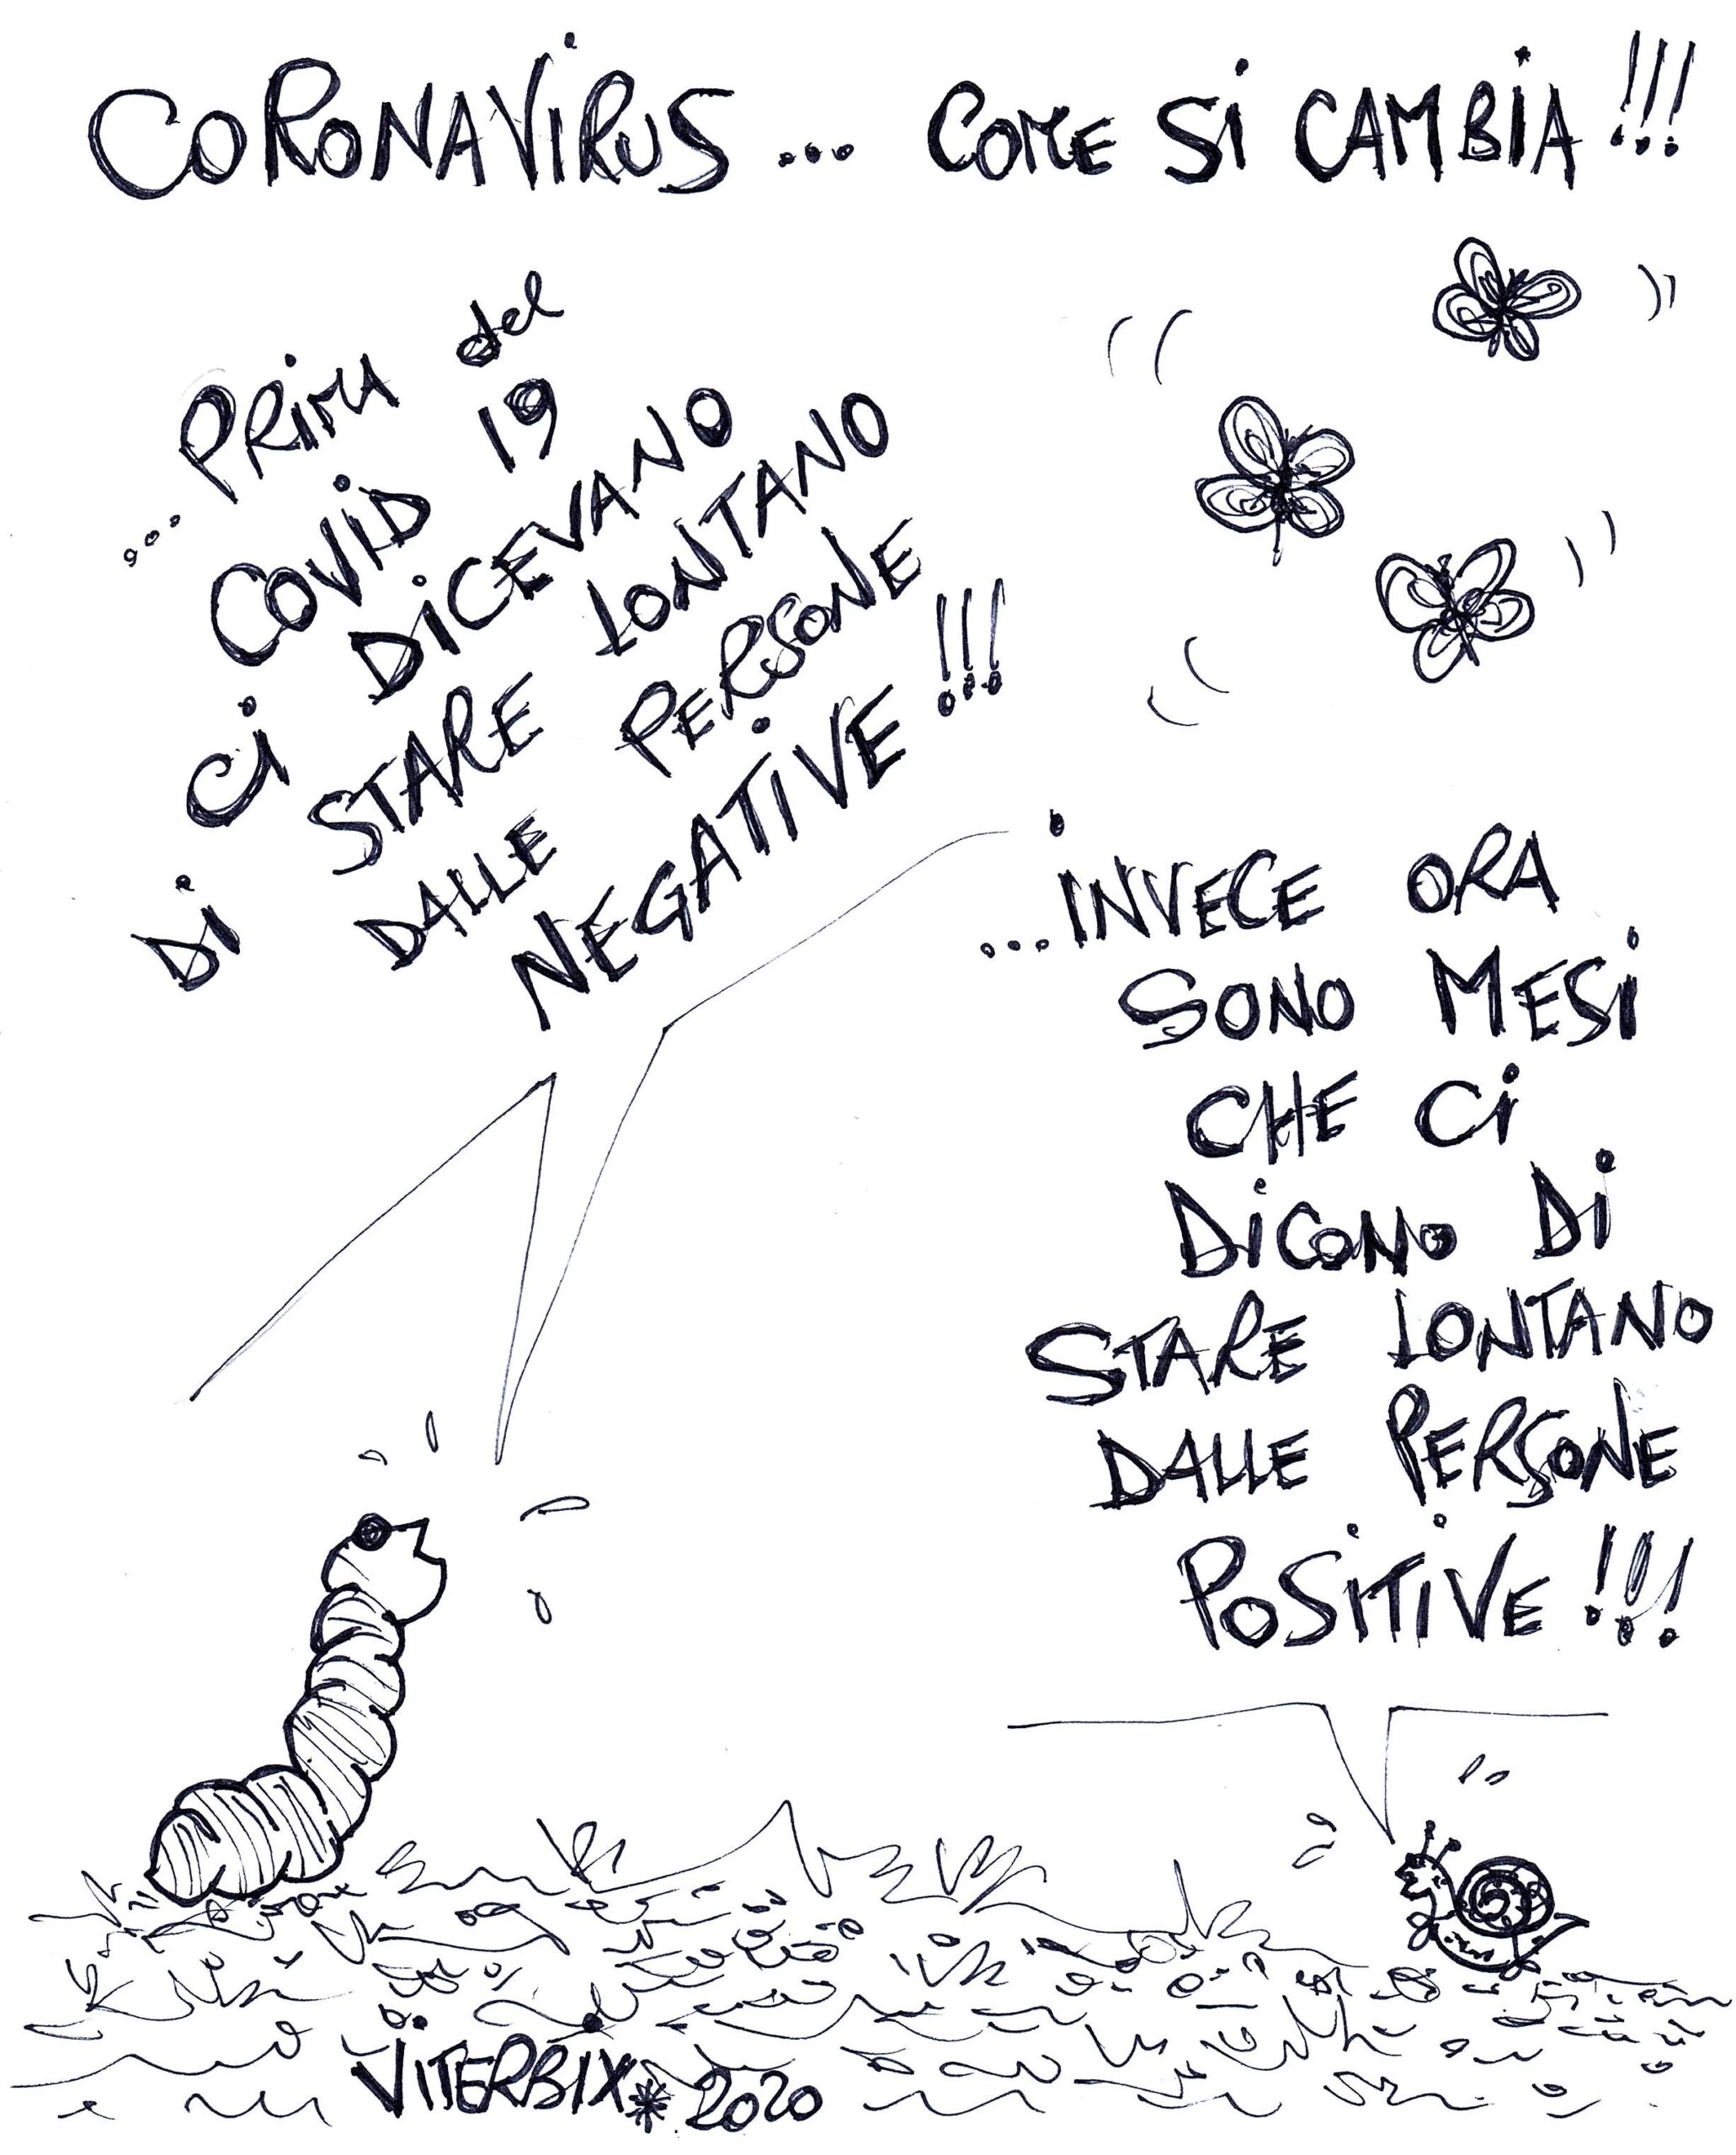 CORONAVIRUS... COME SI CAMBIA!!!
...PRIMA del
COVID 19
CI DICEVANO
DI STARE LONTANO
DALLE PERSONE
NEGATIVE!!!
...INVECE ORA
SONO MESI
CHE CI
DICONO DI
STARE LONTANO
DALLE PERSONE
POSITIVE!!!
VITERBIX* 2020